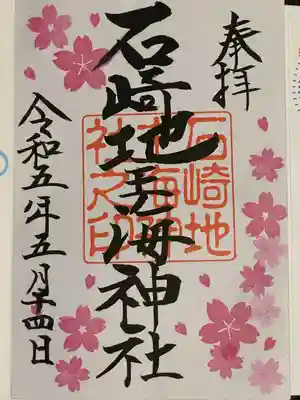 奉拝
石崎地主海神社
令和五年五月十四日
石崎地
主海神
社之印